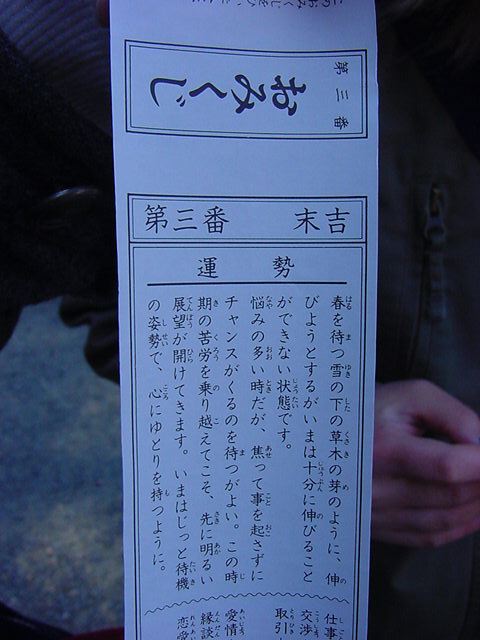 このおみくじを
第三番
おみくじ
第三番 末吉
運勢
春を待つ雪の下の草木の芽のように、伸
びようとするがいまは十分に伸びること
ができない状態です。
悩みの多い時だが、焦って事を起さずに
チャンスがくるのを待つがよい。この時
期の苦労を乗り越えてこそ、先に明るい
展望が開けてきます。いまはじっと待機
の姿勢で、心にゆとりを持つように。
仕事
交渉
取引
愛情
縁談
恋愛